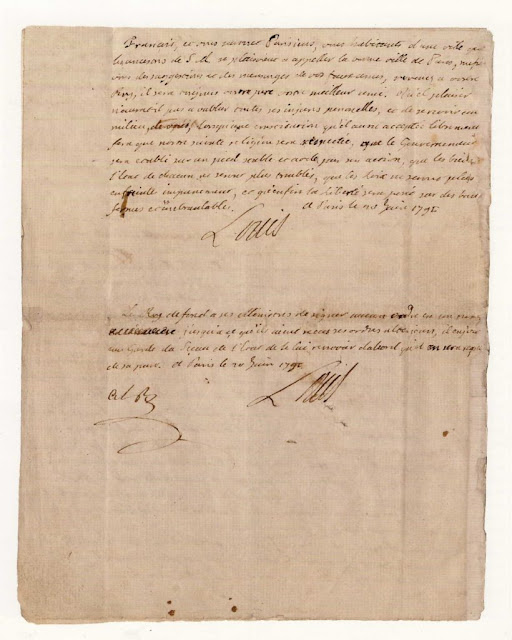 Francais, et vous surtout Parisiens, vous habitants d'une ville que
les ancestres de S. M. se plaisoient a appeller la bonne ville de Paris, mefiez
vous des suggestions et des mensonges de vos faux amis, revenez a votre
Roy, il sera toujours votre pere, votre meilleur ami. Quel plaisir
n'aurat-il pas a oublier toutes ses injures personelles, et de se revoir au
milieu de vous, lorsqu'une constitution qu'il aura acceptée librement
fera que notre sainte religion sera respectée, que le Gouvernement
sera etabli sur un pied stable et utile par son action, que les biens et
l'etat de chacun ne seront plus troublés, que les loix ne seront plus
enfreinte impunement, et qu'enfin la liberté sera posée sur des bases
fermes et inebranlables. a Paris le 20 Juin 1791.
Louis
Le Roy defend a ses ministres de signer aucun ordre en son nom
jusqu'a ce qu'ils aient recus ses ordres ulterieurs, il enjoint
au Garde du Sceau de l'Etat de le lui renvoier d'abord qu'il en sera requis
de sa part. a Paris le 20 Juin 1791
Louis